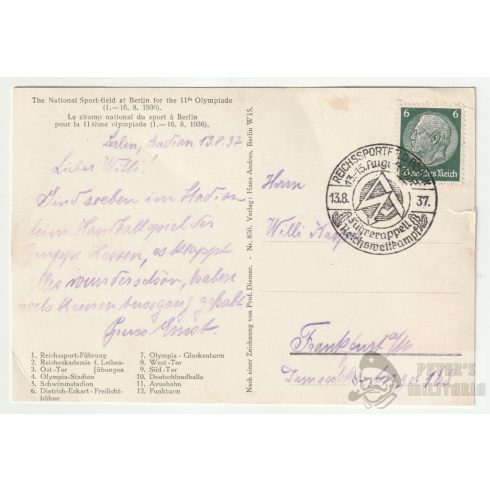 The National Sport-field at Berlin for the 11th Olympiade
(1.—16. 8. 1936).
Le champ national du sport à Berlin
pour la 11ième olympiade (1.—16. 8. 1936).
Berlin, Stadion 13.8.37
Lieber Willi!
Sind soeben im Stadion
beim Handballspiel der
Gruppe Hessen, es klappt
alles wunderschön, haben
noch keinen Ausgang gehabt
Gruss Ernst.
1. Reichssport-Führung
2. Reichsakademie f. Leibes-
3. Ost-Tor [übungen
4. Olympia-Stadion
5. Schwimmstadion
6. Dietrich-Eckart-Freilicht-
bühne
7. Olympia - Glockenturm
8. West-Tor
9. Süd-Tor
10. Deutschlandhalle
11. Avusbahn
12. Funkturm
Nach einer Zeichnung von Prof. Diemer. - Nr. 850. Verlag: Hans Andres, Berlin W 15.
6 6
Deutsches Reich
REICHSSPORTFELD
13.-15. Aug.
13.8. 37.
Führerappell
Reichswettkämpfe
Herrn
Willi
Frankfurt a/M
PETER'S
MILITARIA